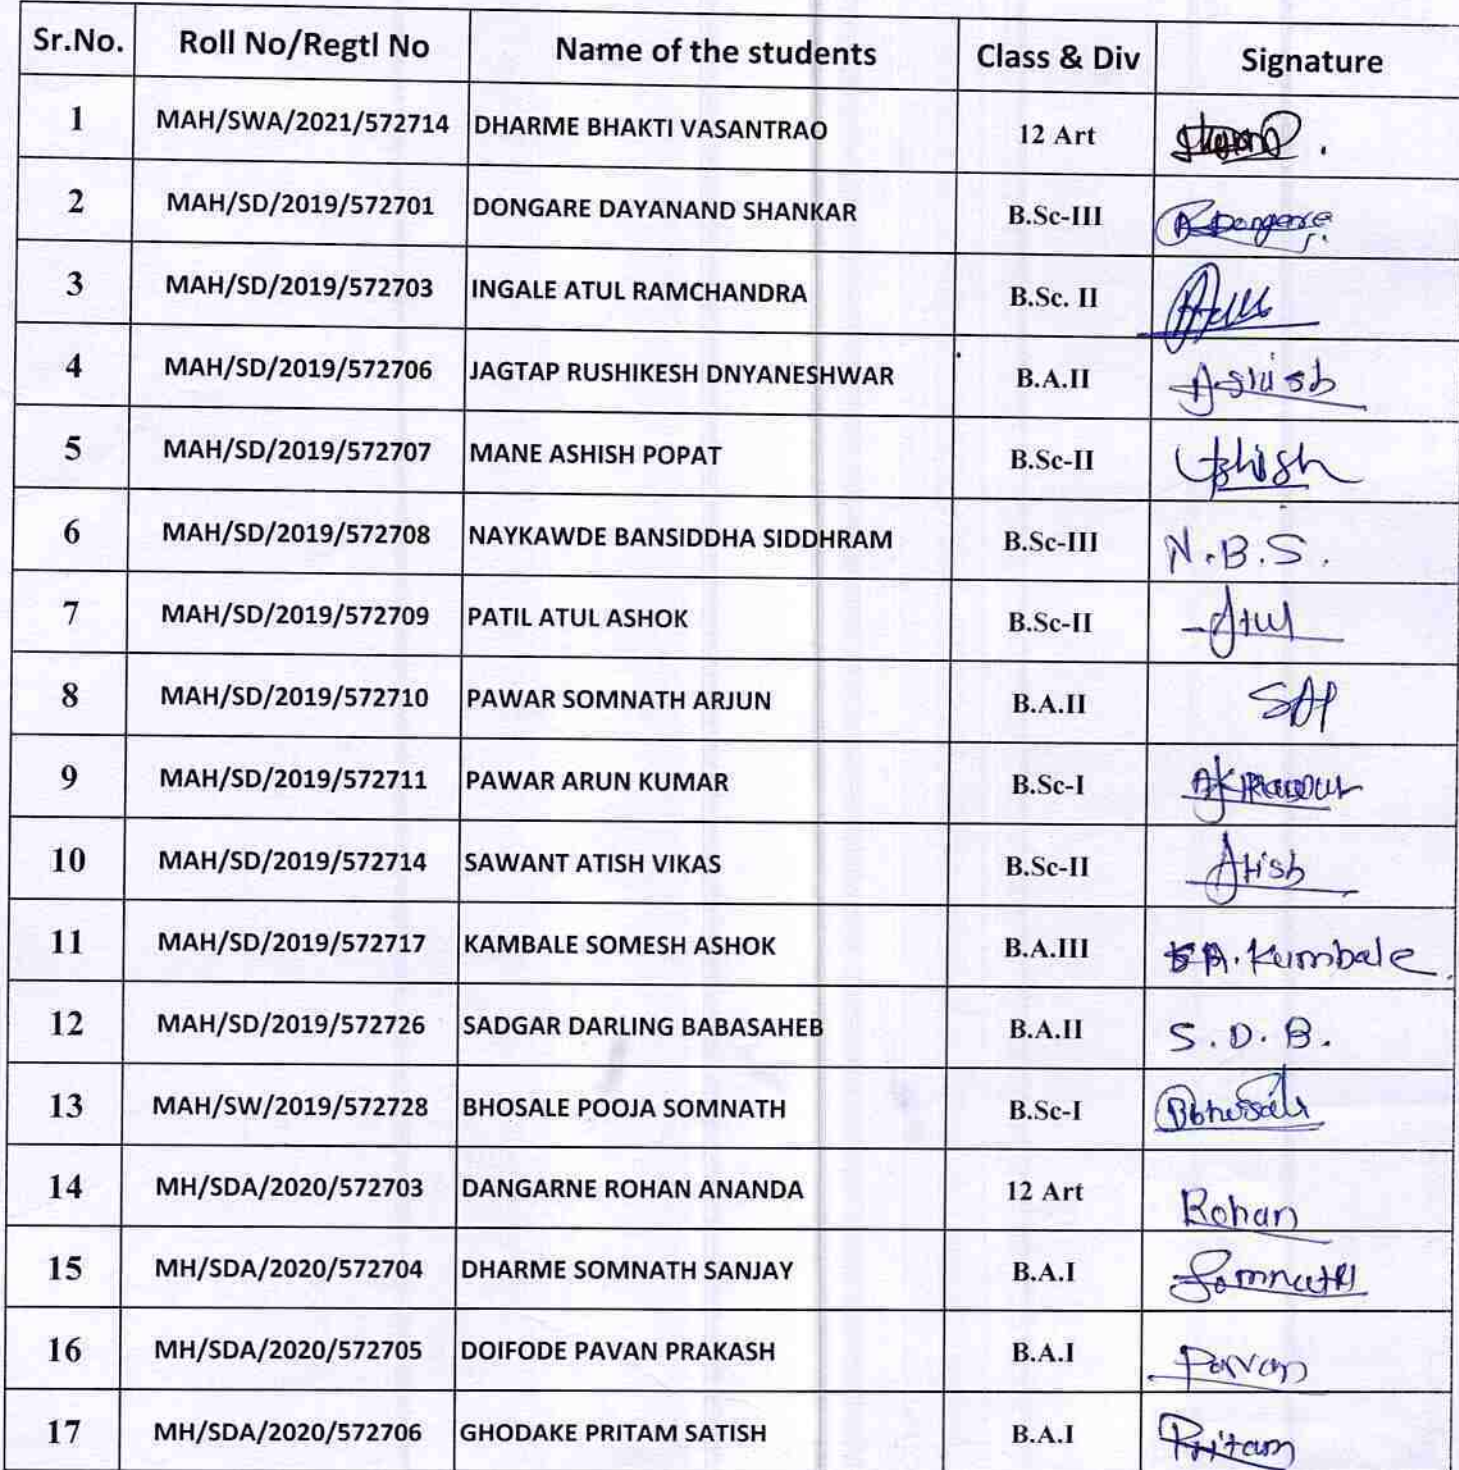 Sr.No. Roll No/Regtl No Name of the students Class & Div Signature
1 MAH/SWA/2021/572714 DHARME BHAKTI VASANTRAO 12 Art
2 MAH/SD/2019/572701 DONGARE DAYANAND SHANKAR B.Sc-III Dongare
3 MAH/SD/2019/572703 INGALE ATUL RAMCHANDRA B.Sc. II
4 MAH/SD/2019/572706 JAGTAP RUSHIKESH DNYANESHWAR B.A.II
5 MAH/SD/2019/572707 MANE ASHISH POPAT B.Sc-II Ashish
6 MAH/SD/2019/572708 NAYKAWDE BANSIDDHA SIDDHRAM B.Sc-III N.B.S.
7 MAH/SD/2019/572709 PATIL ATUL ASHOK B.Sc-II Atul
8 MAH/SD/2019/572710 PAWAR SOMNATH ARJUN B.A.II SAP
9 MAH/SD/2019/572711 PAWAR ARUN KUMAR B.Sc-I
10 MAH/SD/2019/572714 SAWANT ATISH VIKAS B.Sc-II Atish
11 MAH/SD/2019/572717 KAMBALE SOMESH ASHOK B.A.III Kumbale
12 MAH/SD/2019/572726 SADGAR DARLING BABASAHEB B.A.II S.D.B.
13 MAH/SW/2019/572728 BHOSALE POOJA SOMNATH B.Sc-I
14 MH/SDA/2020/572703 DANGARNE ROHAN ANANDA 12 Art Rohan
15 MH/SDA/2020/572704 DHARME SOMNATH SANJAY B.A.I Somnath
16 MH/SDA/2020/572705 DOIFODE PAVAN PRAKASH B.A.I Pavan
17 MH/SDA/2020/572706 GHODAKE PRITAM SATISH B.A.I Pritam